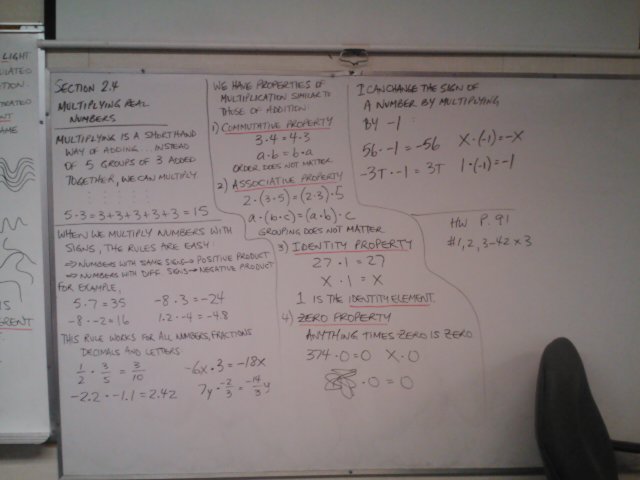 LIGHT
SECTION 2.4
MULTIPLYING REAL
NUMBERS
MULTIPLYING IS A SHORTHAND
WAY OF ADDING... INSTEAD
OF 5 GROUPS OF 3 ADDED
TOGETHER, WE CAN MULTIPLY
5·3=3+3+3+3+3=15
WHEN WE MULTIPLY NUMBERS WITH
SIGNS, THE RULES ARE EASY
⇒ NUMBERS WITH SAME SIGNS → POSITIVE PRODUCT
⇒ NUMBERS WITH DIFF. SIGNS → NEGATIVE PRODUCT
FOR EXAMPLE,
5·7=35 -8·3=-24
-8·-2=16 1.2·-4=-4.8
THIS RULE WORKS FOR ALL NUMBERS, FRACTIONS
DECIMALS AND LETTERS
1/2 · 3/5 = 3/10 -6x·3=-18x
-2.2·-1.1=2.42 7y·-2/3=-14/3 y
WE HAVE PROPERTIES OF
MULTIPLICATION SIMILAR TO
THOSE OF ADDITION:
1) COMMUTATIVE PROPERTY
3·4=4·3
a·b=b·a
ORDER DOES NOT MATTER
2) ASSOCIATIVE PROPERTY
2·(3·5)=(2·3)·5
a·(b·c)=(a·b)·c
GROUPING DOES NOT MATTER
3) IDENTITY PROPERTY
27·1=27
X·1=X
1 IS THE IDENTITY ELEMENT.
4) ZERO PROPERTY
ANYTHING TIMES ZERO IS ZERO
374·0=0 X·0
·0=0
I CAN CHANGE THE SIGN OF
A NUMBER BY MULTIPLYING
BY -1:
56·-1=-56 X·(-1)=-X
-3T·-1=3T 1·(-1)=-1
HW P. 91
#1,2,3-42 x 3